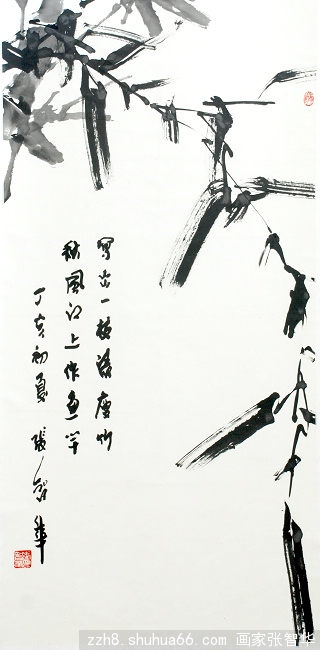 寫出一枝清瘦竹
秋風江上作魚竿
丁亥初夏 張智華
zzh8.shuhua66.com 画家张智华